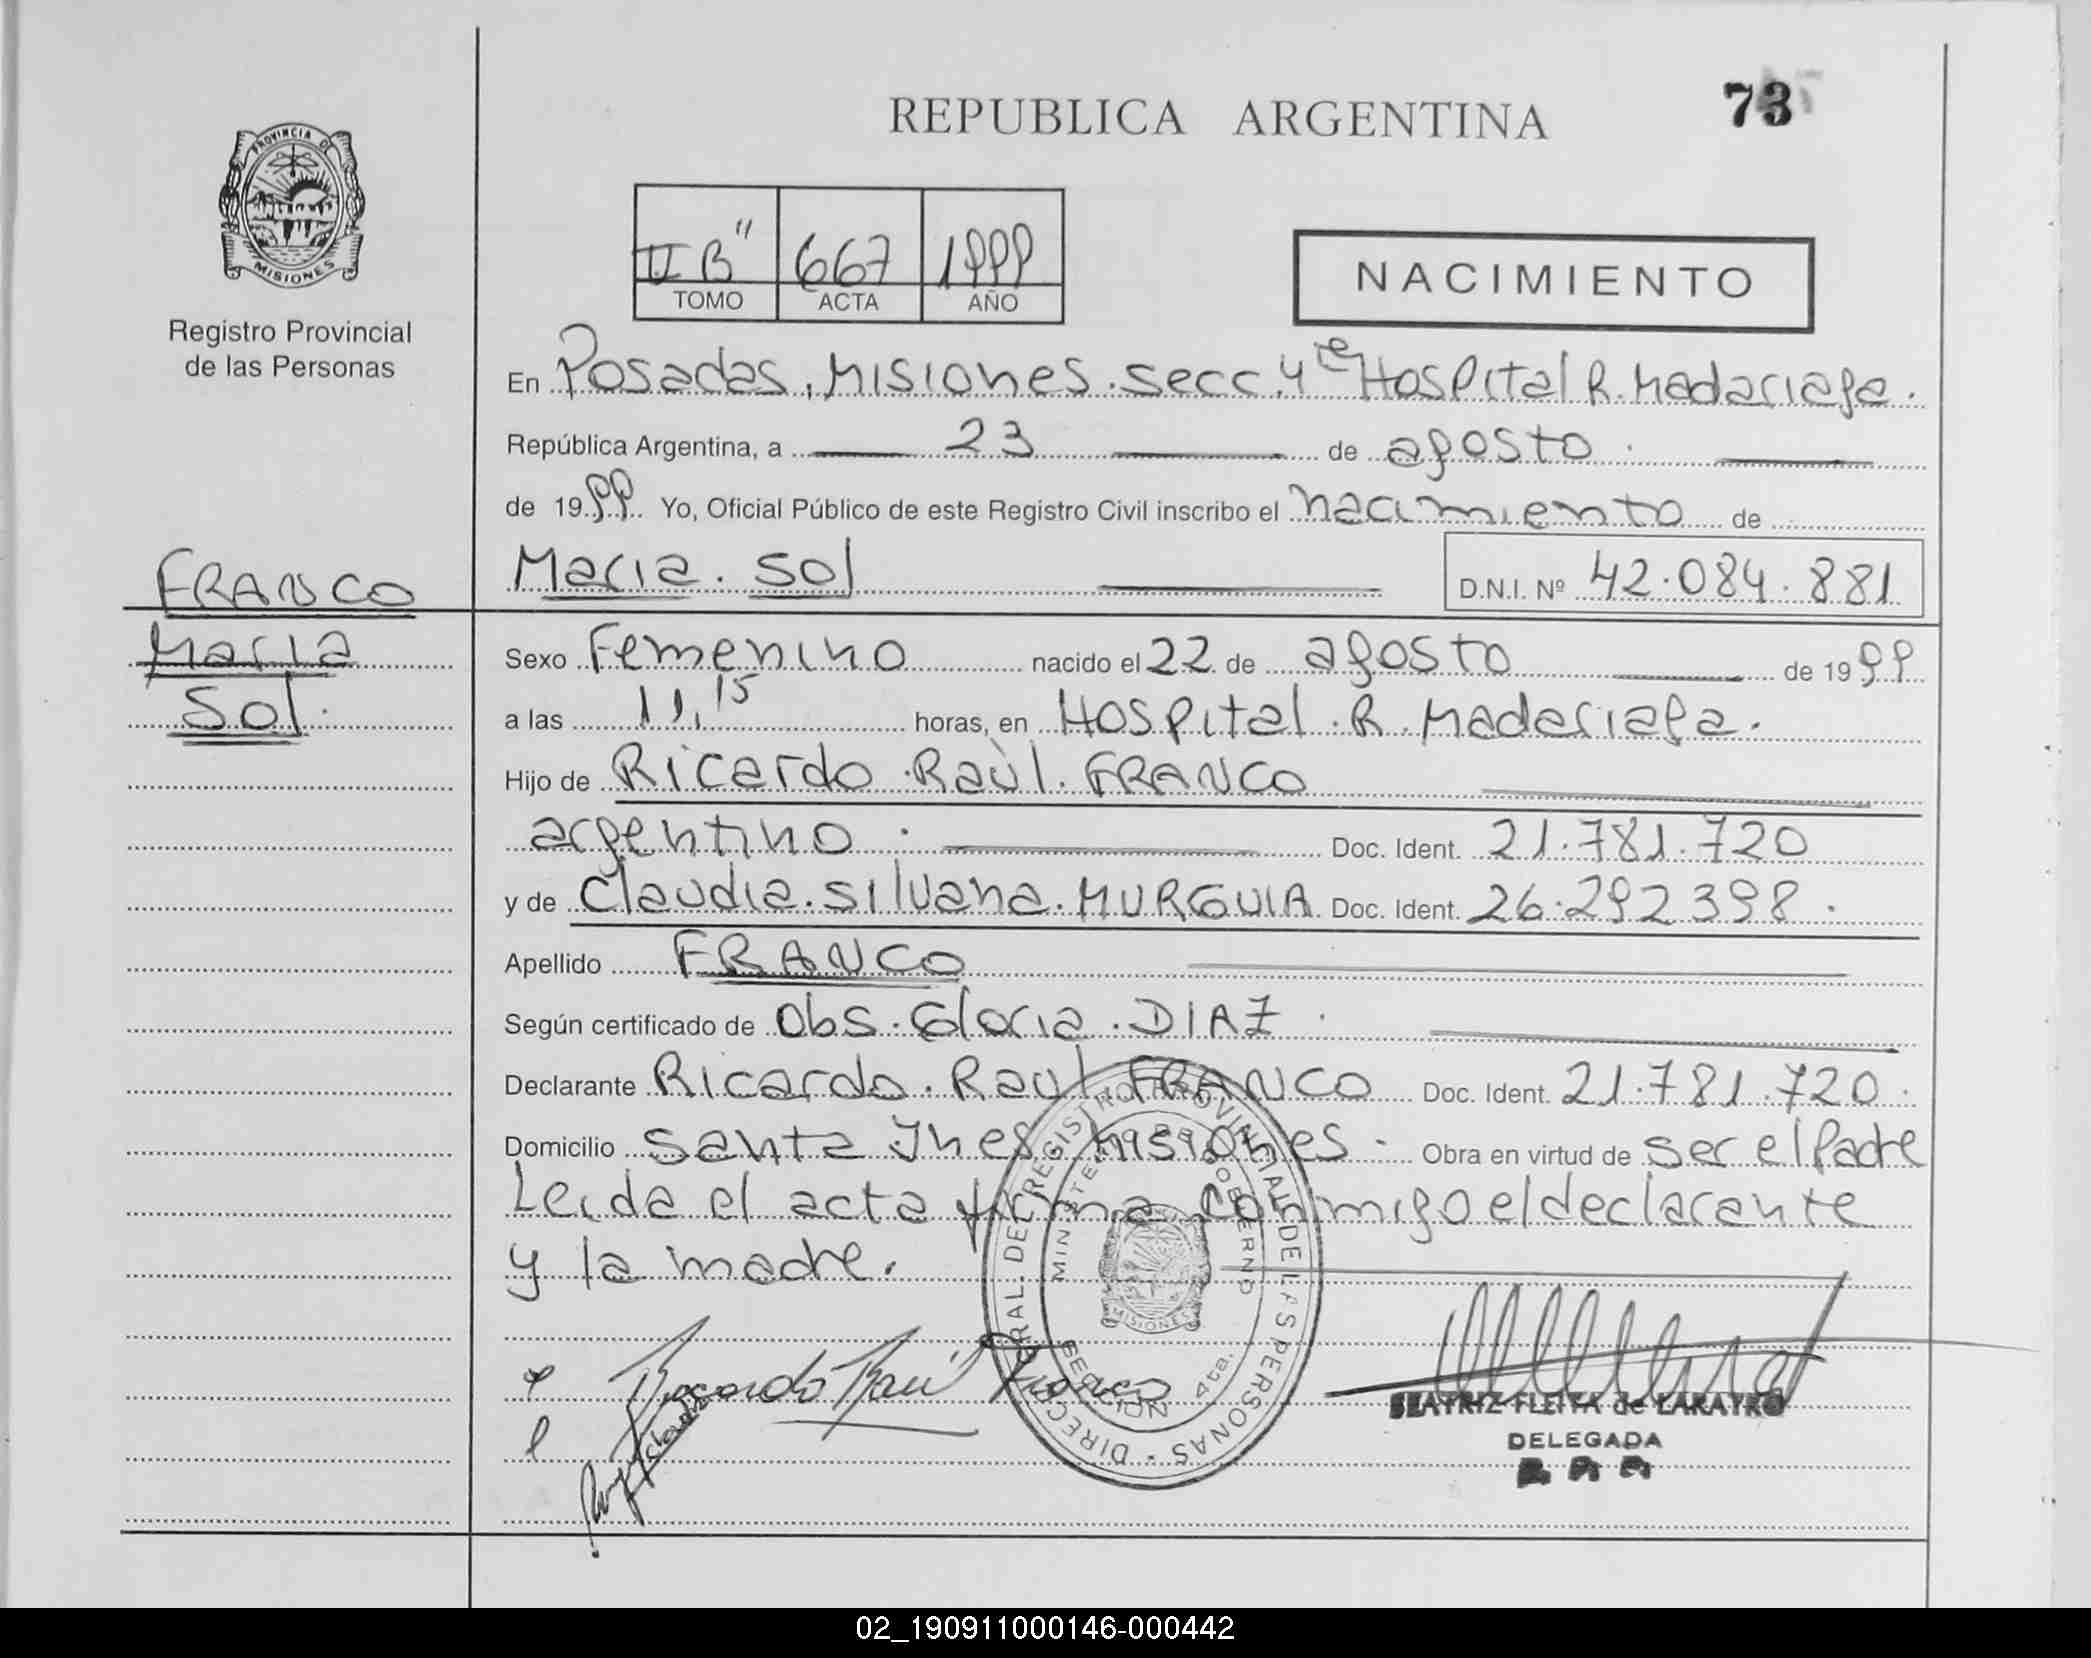 REPUBLICA ARGENTINA
73
PROVINCIA DE
MISIONES
Registro Provincial
de las Personas
II B" 667 1999
TOMO ACTA AÑO
NACIMIENTO
En Posadas, Misiones. secc. 4ta Hospital R. Madariaga.
República Argentina, a 23 de agosto.
de 1999 Yo, Oficial Público de este Registro Civil inscribo el nacimiento de
Maria. Sol
D.N.I. Nº 42.084.881
FRANCO
Maria
Sol.
Sexo Femenino nacido el 22 de agosto de 1999
a las 11,15 horas, en Hospital. R. Madariaga.
Hijo de Ricardo. Raùl. FRANCO
argentino. Doc. Ident. 21.781.720
y de Claudia. Silvana. MURGUIA Doc. Ident. 26.292398.
Apellido FRANCO
Según certificado de Obs. Gloria. DIAZ.
Declarante Ricardo. Raul FRANCO Doc. Ident. 21.781.720.
Domicilio Santa Ines Misiones. Obra en virtud de ser el Padre
Leida el acta firma conmigo el declarante
y la madre.
DIRECC GRAL. DEL REGISTRO PROVINCIAL DE LAS PERSONAS
MINISTERIO DE GOBIERNO
MISIONES
SECCION 4ta.
Ricardo Raúl Franco
BEATRIZ FLEITA de
DELEGADA
02_190911000146-000442